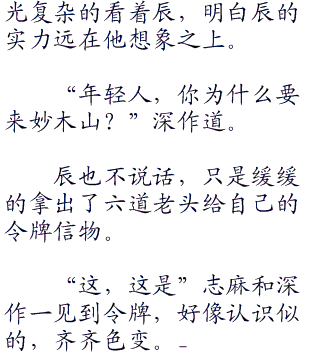 光复杂的看着辰，明白辰的
实力远在他想象之上。
“年轻人，你为什么要
来妙木山？”深作道。
辰也不说话，只是缓缓
的拿出了六道老头给自己的
令牌信物。
“这，这是”志麻和深
作一见到令牌，好像认识似
的，齐齐色变。_